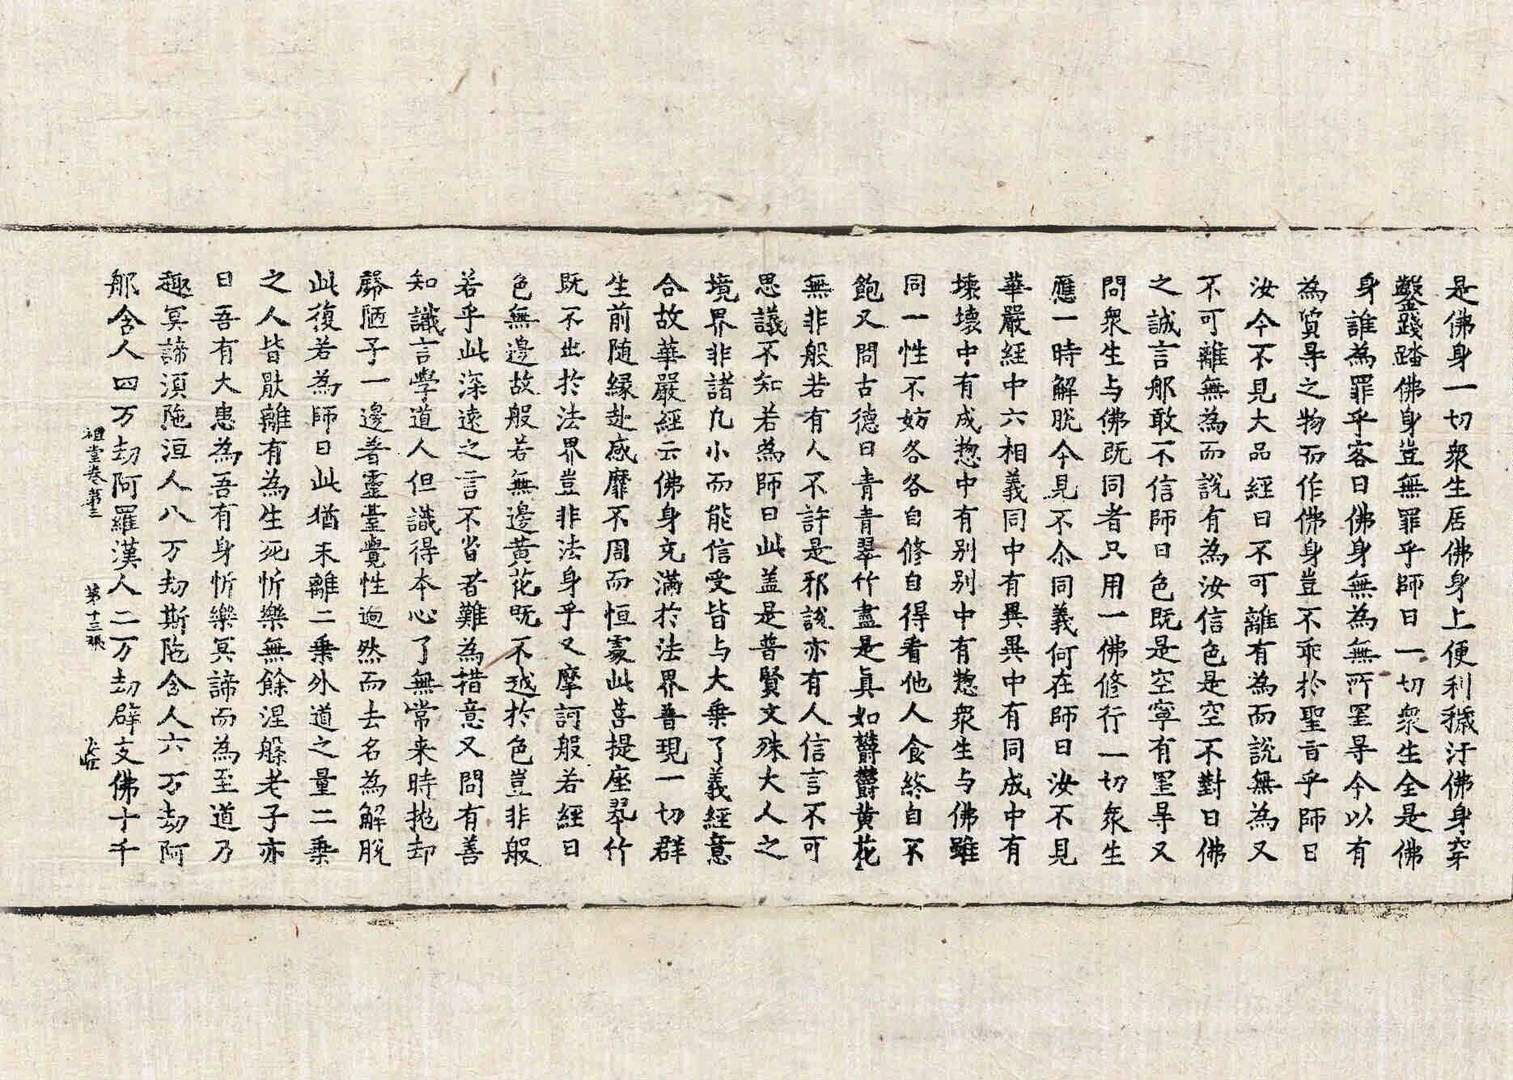 是佛身一切衆生居佛身上便利穢汙佛身穿
鑿踐蹹佛身豈無罪乎師曰一切衆生全是佛
身誰為罪乎客曰佛身無為無所罣㝵今以有
為質㝵之物而作佛身豈不乖於聖旨乎師曰
汝今不見大品經曰不可離有為而說無為又
不可離無為而說有為汝信色是空不對曰佛
之誠言那敢不信師曰色既是空寧有罣㝵又
問衆生与佛既同者只用一佛修行一切衆生
應一時解脫今見不尒同義何在師曰汝不見
華嚴經中六相義同中有異異中有同成中有
壞壞中有成惣中有別別中有惣衆生与佛雖
同一性不妨各各自修自得看他人食終自不
飽又問古德曰青青翠竹盡是真如欝欝黃花
無非般若有人不許是邪說亦有人信言不可
思議不知若為師曰此盖是普賢文殊大人之
境界非諸凡小而能信受皆与大乘了義經意
合故華嚴經云佛身充滿於法界普現一切群
生前随緣赴感靡不周而恒處此菩提座翠竹
既不出於法界豈非法身乎又摩訶般若經曰
色無邊故般若無邊黃花既不越於色豈非般
若乎此深遠之言不省者難為措意又問有善
知識言學道人但識得本心了無常来時抛却
殼陋子一邊著靈臺覺性迥然而去名為解脫
此復若為師曰此猶未離二乘外道之量二乘
之人皆猒離有為生死忻樂無餘涅槃老子亦
曰吾有大患為吾有身忻樂冥諦而為至道乃
趣冥諦湏陁洹人八万劫斯陁含人六万劫阿
那含人四万劫阿羅漢人二万劫辟支佛十千
祖堂卷第三 第十三張